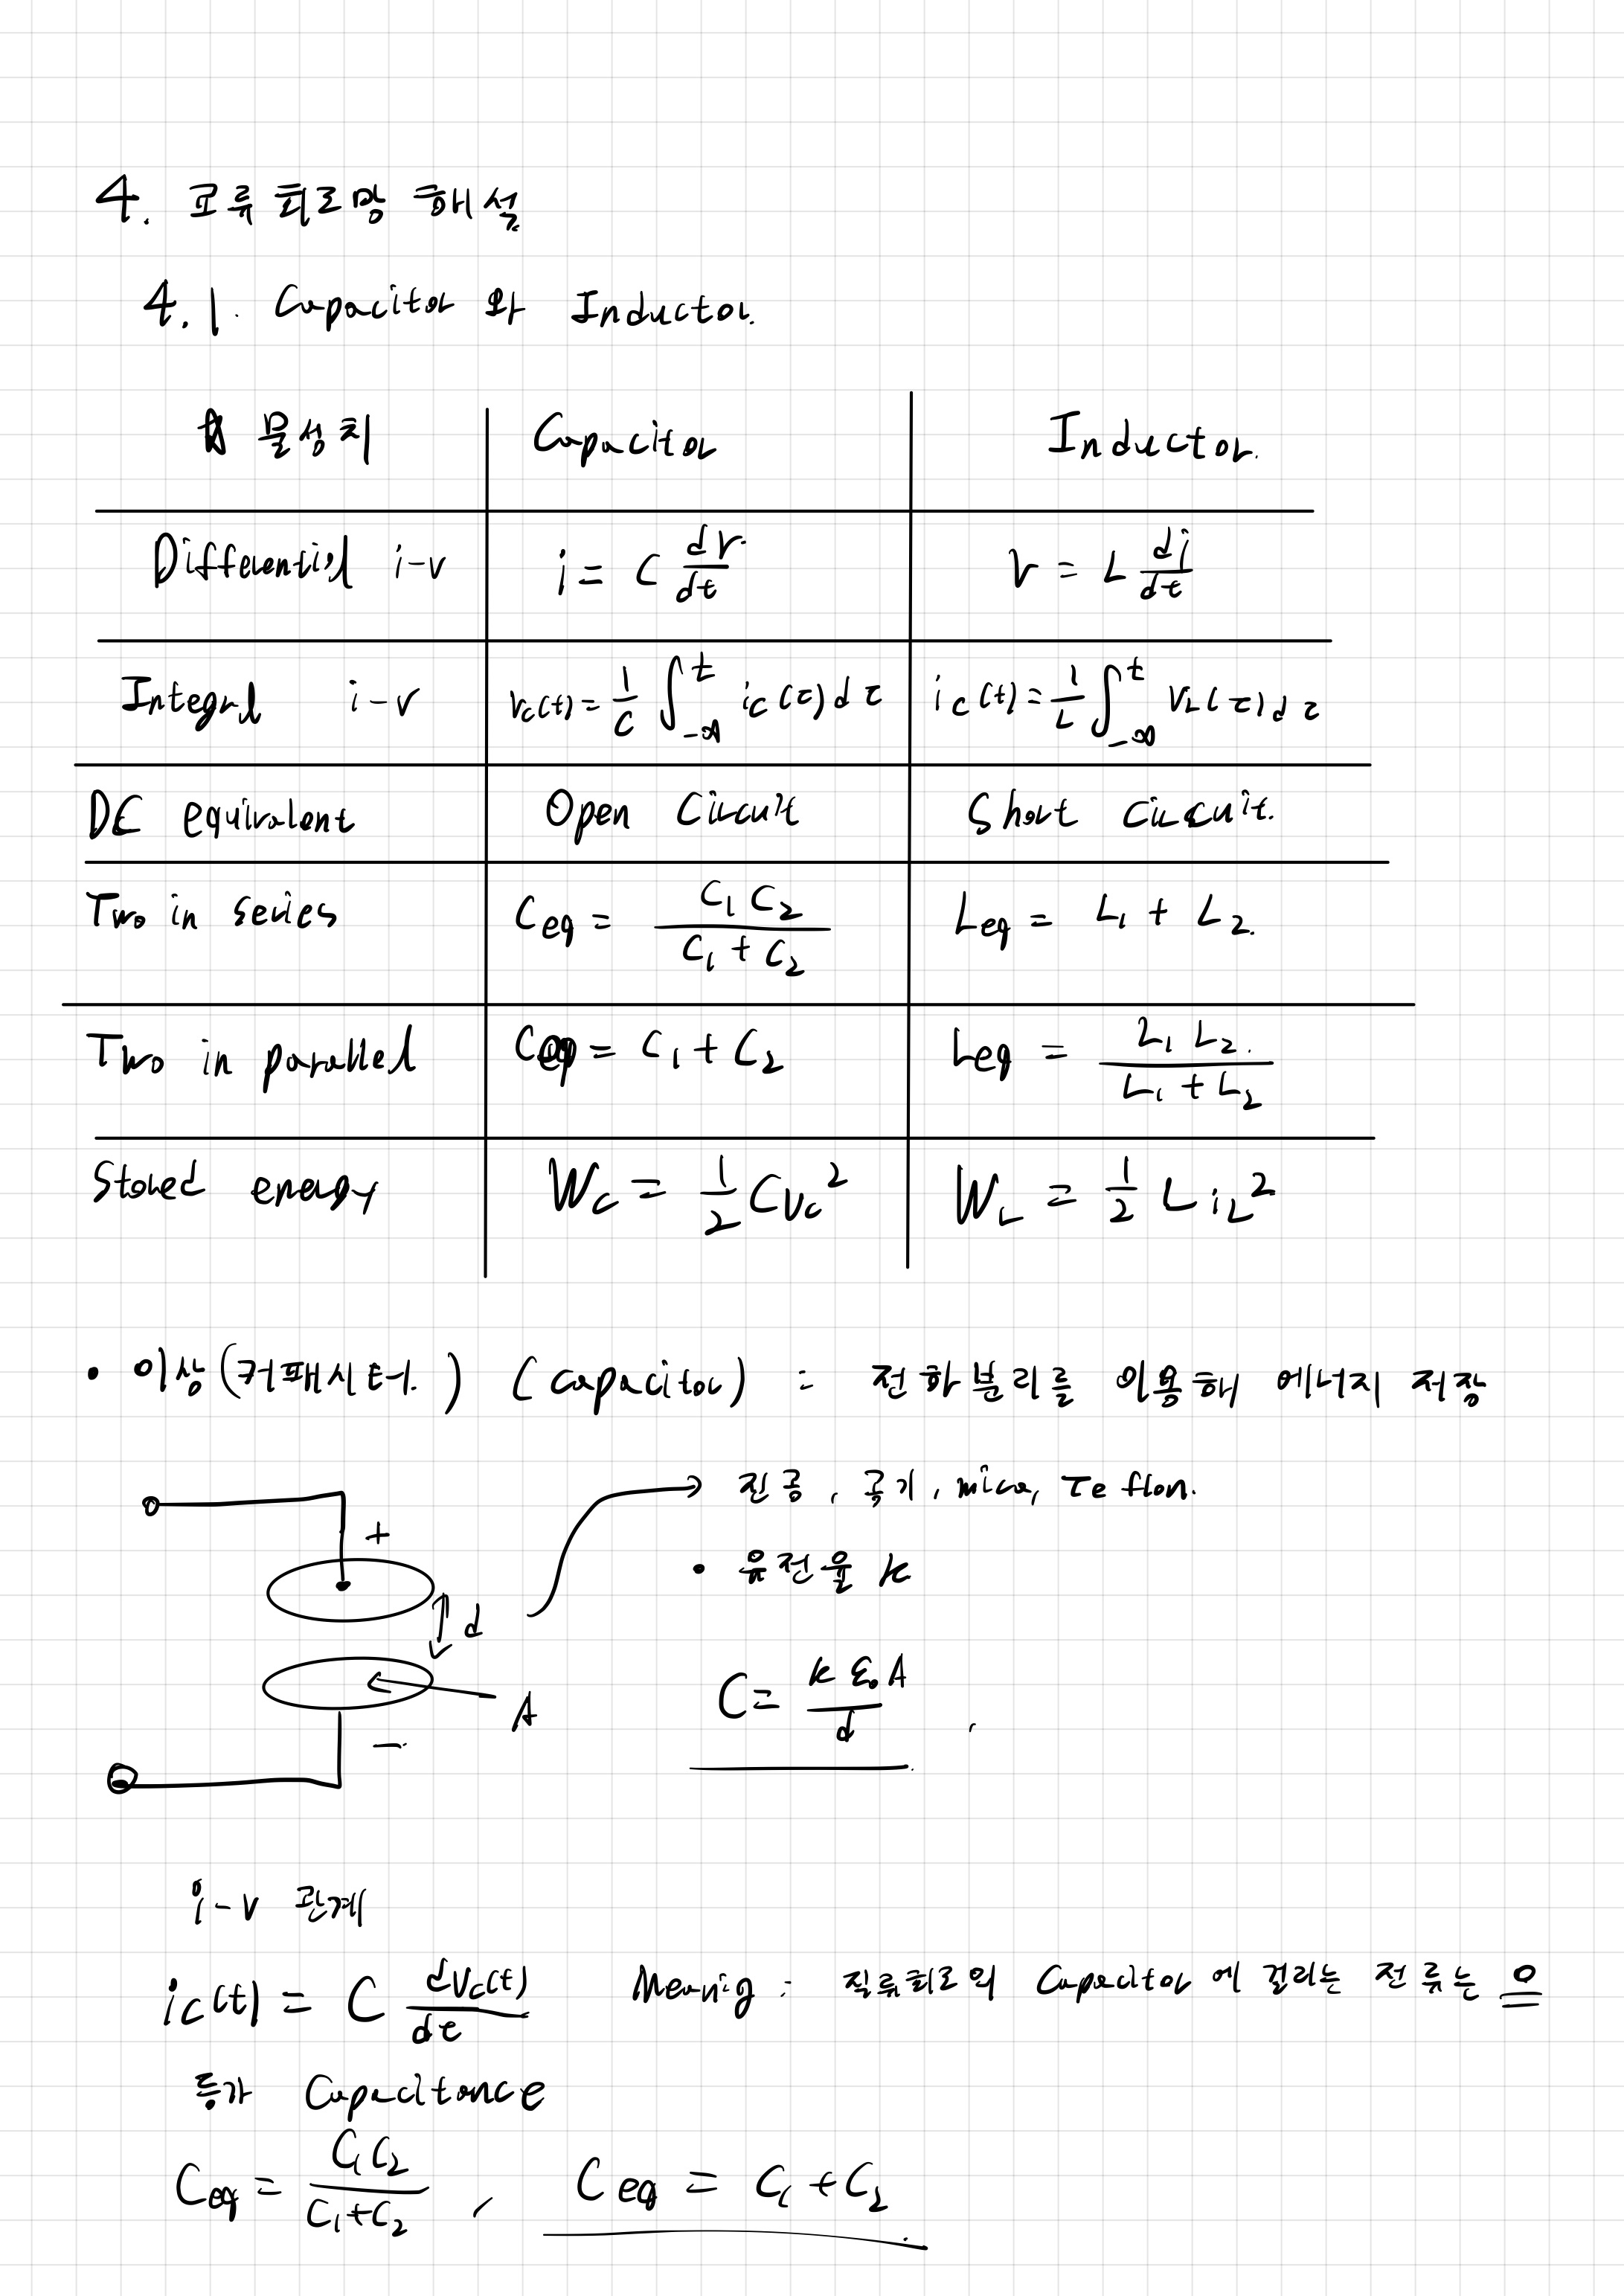 4. 교류 회로망 해설
4.1. Capacitor 와 Inductor.
물성치 Capacitor Inductor.
Differential i-v i = C dv/dt v = L di/dt
Integral i-v Vc(t) = 1/C ∫_{-∞}^{t} ic(τ)dτ ic(t) = 1/L ∫_{-∞}^{t} VL(τ)dτ
DC equivalent Open Circuit Short Circuit.
Two in series Ceq = C1C2/(C1+C2) Leq = L1 + L2.
Two in parallel Ceq = C1 + C2 Leq = L1L2/(L1+L2)
Stored energy Wc = 1/2 CVc² WL = 1/2 L iL²
• 이상(커패시터.) (capacitor) : 전하분리를 이용해 에너지 저장
진공, 공기, mica, Teflon.
+
• 유전율 k
d
C = kε₀A/d
A
−
i-v 관계
ic(t) = C dVc(t)/dt Meaning : 직류회로의 Capacitor 에 걸리는 전류는 0
등가 Capacitance
Ceq = C1C2/(C1+C2) , Ceq = C1 + C2